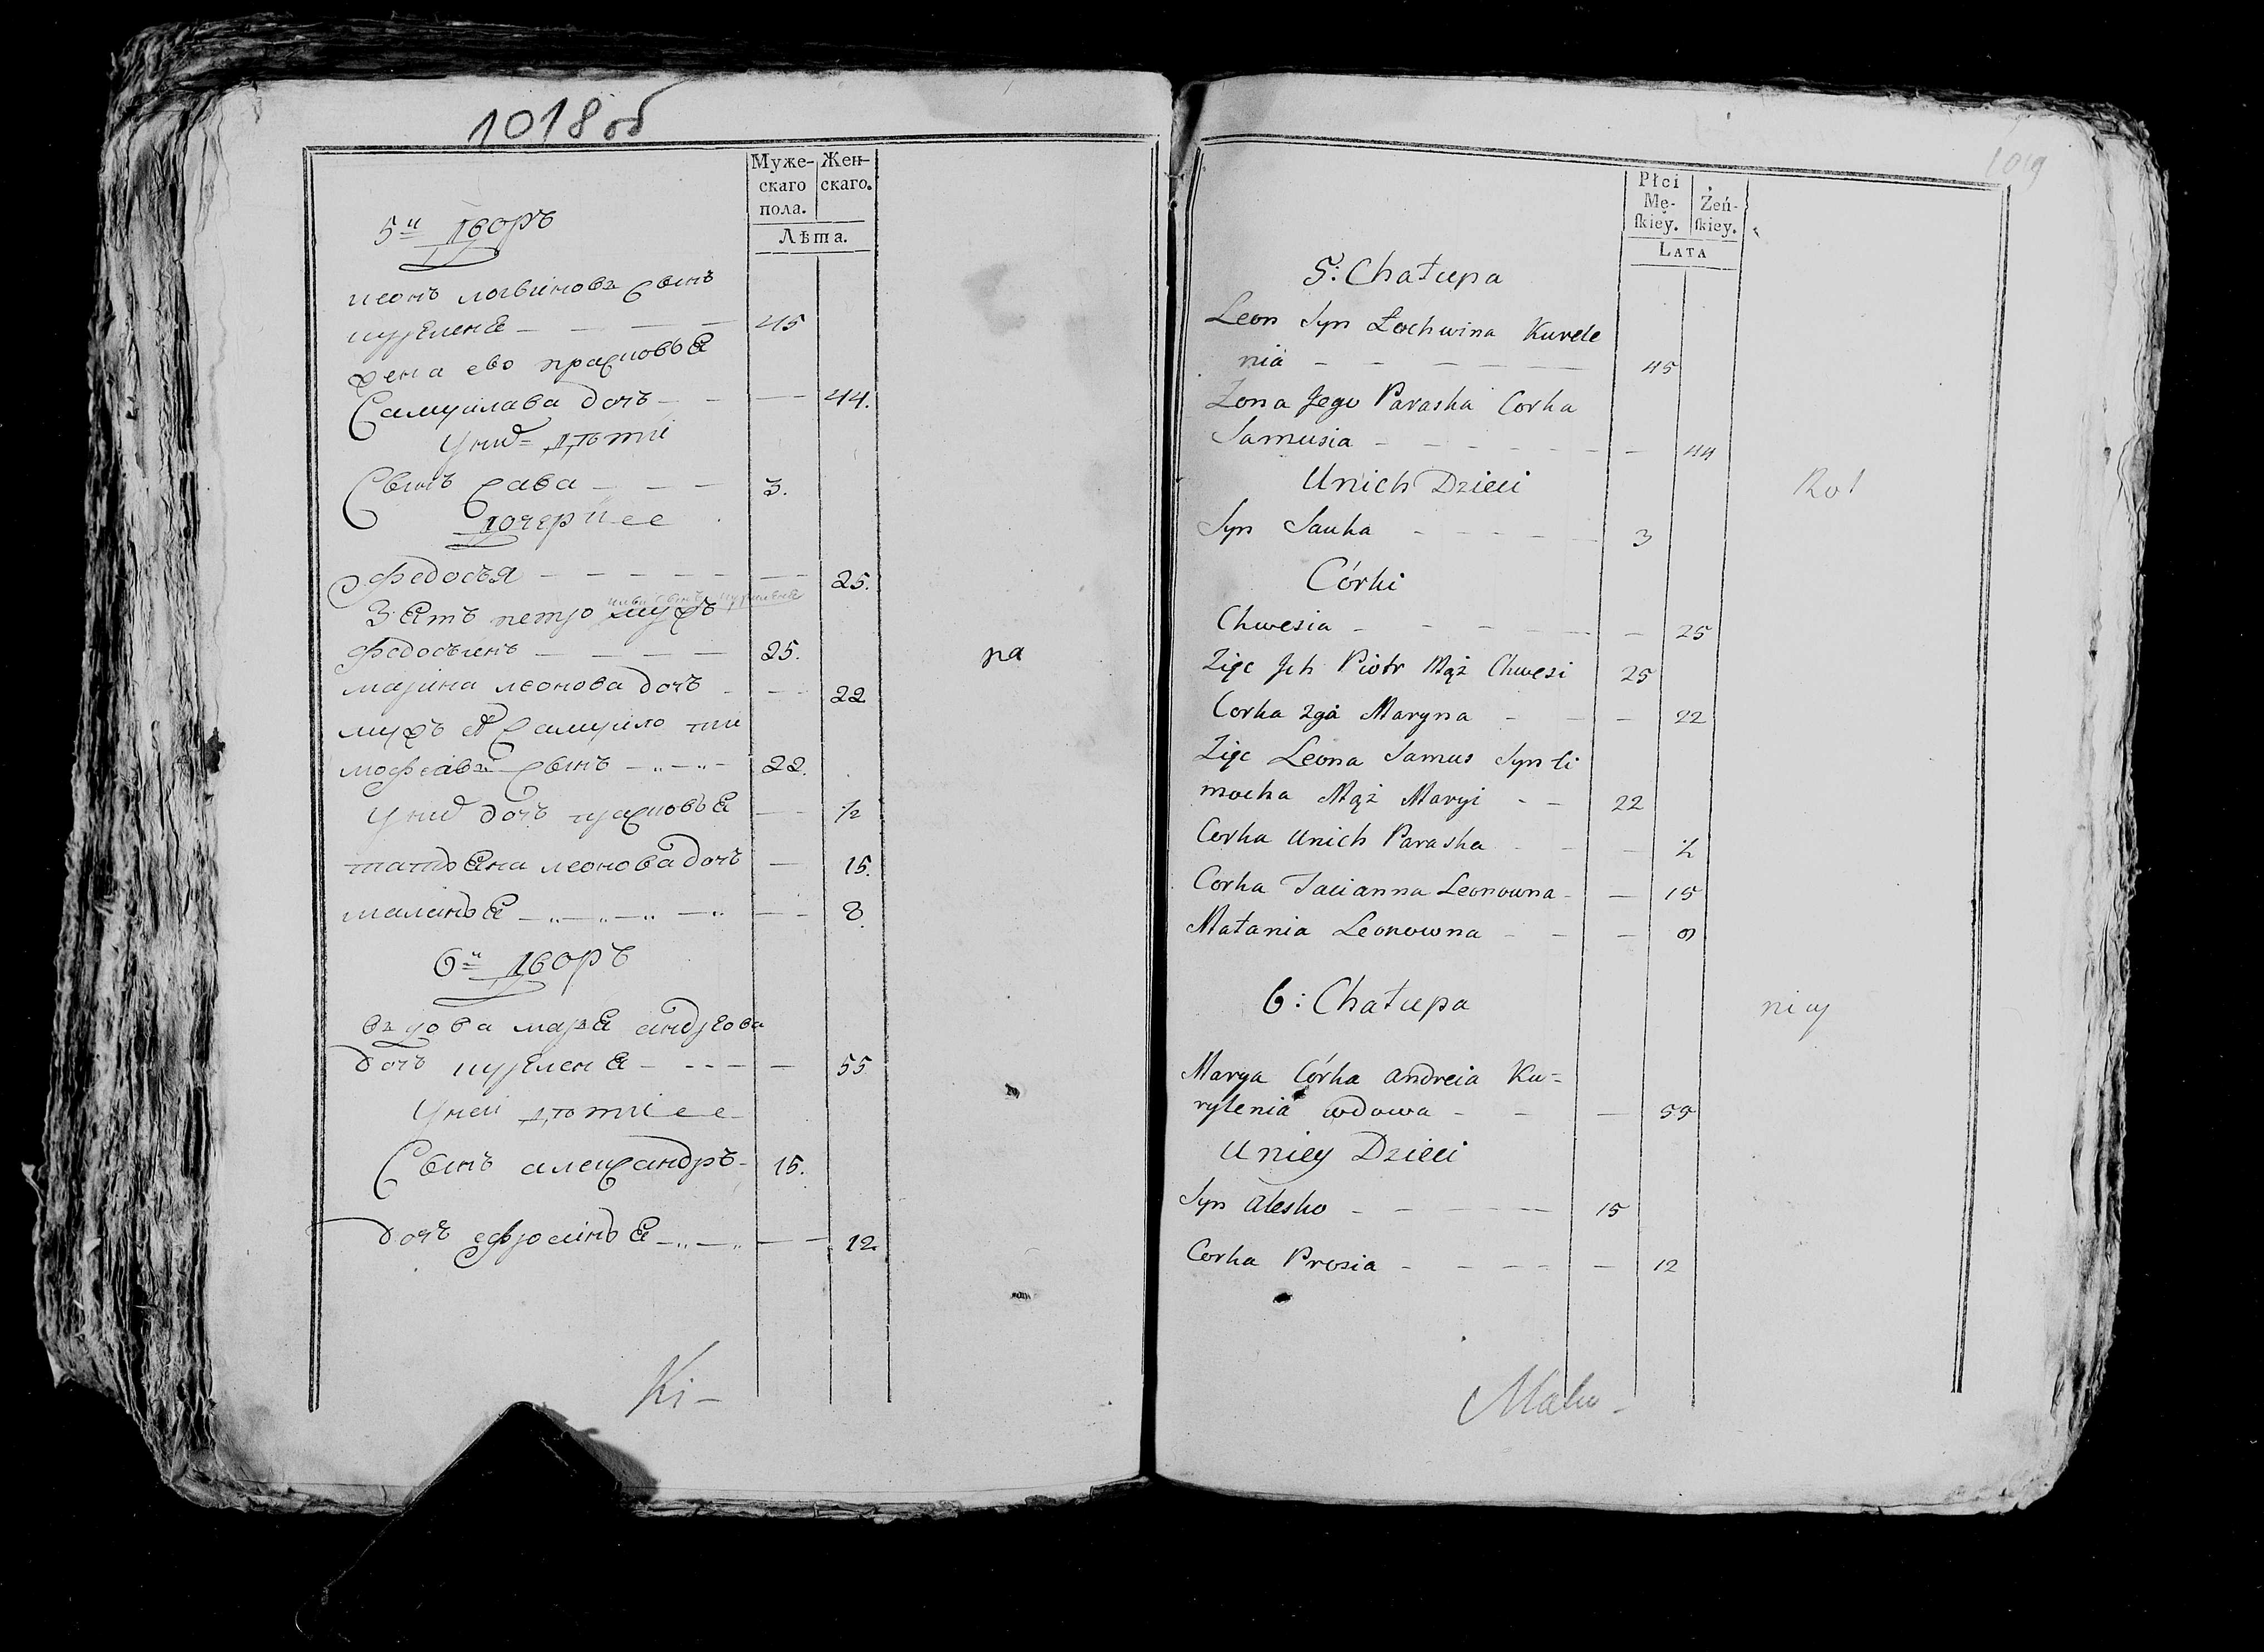 1018 об
Муже-
скаго
пола.
Жен-
скаго.
Лѣта.
5й дворъ
леонъ логвиновъ сынъ
куреленя — — — — 45
жена ево прасковья
Самуилава дочъ — — — 44.
У них дѣти
Сынъ сава — — — 3.
дочери ее
федосья — — — — — 25.
Зять петро мужъ
федосьинъ — — — — 25.
марина леонова дочъ — — 22
мужъ ея самуило тим
мофеавъ сынъ — „ — „ — 22.
У них дочъ прасковья — — ½
татьяна леонова дочъ — 15.
маланья — „ — „ — „ — „ — — 8.
6й дворъ
вдова марья андреова
дочъ куреленя — — — — 55
У ней дѣти ее
Сынъ александръ — 15.
дочъ ефросинья — „ — „ — — 12
ра
Ki —
1019
Płci
Mę-
skiey.
Żeń-
skiey.
LATA
5: Chałupa
Leon Syn Łochwina Kurele
nia — — — — — — 45
Zona Jego Paraska Corka
Samusia — — — — — — — 44
Unich Dzieci
Syn Sauka — — — — — 3
Córki
Chwesia — — — — — — 25
Zięc Jch Piotr Mąż Chwesi 25
Corka 2ga Maryna — — — 22
Zięc Leona Samus Syn ti
mocha Mąż Maryi — — 22
Corka Unich Paraska — — — ½
Corka Tacianna Leonowna — — 15
Małania Leonowna — — — 8
6: Chałupa
Marya Córka Andreia Ku=
rylenia wdowa — — — 55
Uniey Dzieci
Syn Alesko — — — — — 15
Corka Prosia — — — — — 12
Rol
nicy
Malo —